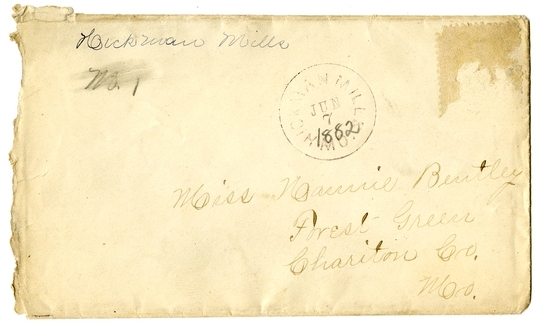 Hickman Mills
No. 1
HICKMAN MILLS
JUN
7
1882
MO.
Miss Nannie Bentley
Forest Green
Chariton Co.
Mo.